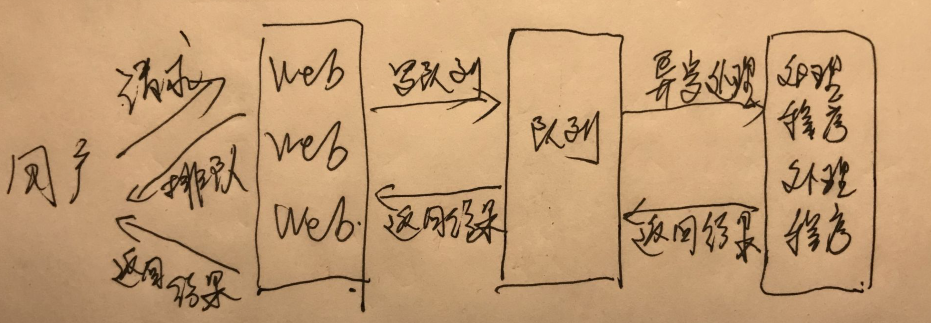 用户
请求
排队
返回结果
Web
Web
Web.
写队列
返回结果
队列
异步处理
返回结果
处理
程序
处理
程序